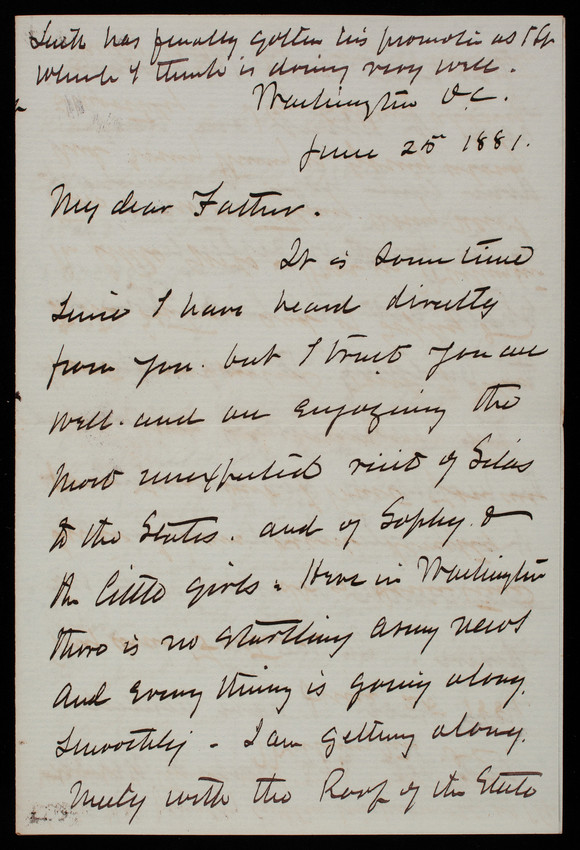 has finally gotten his promotion as
which I think is doing very well.
Washington D.C.
June 25 1881.
My dear Father.
It is some time
since I have heard directly
from you. but I trust you are
well. and are enjoying the
most unexpected visit of Silas
to the States. and of Sophy. &
the little girls. Here in Washington
there is no startling army news
and every thing is going along.
smoothly. I am getting along.
nicely with the Roof of the State